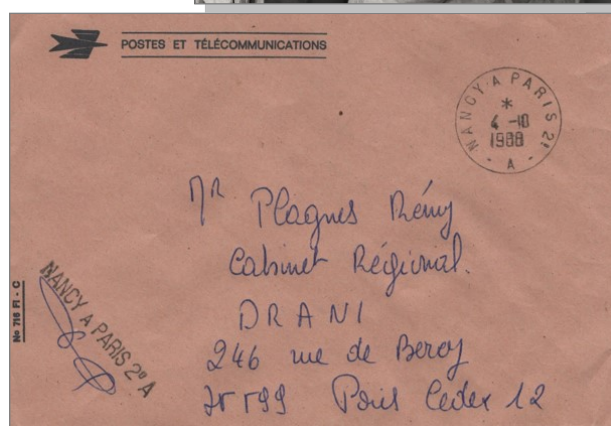 POSTES ET TÉLÉCOMMUNICATIONS
NANCY A PARIS 2º
*
4 -10
1988
- A -
Mr Plagnes Rémy
Cabinet Régional.
DRANI
246 rue de Bercy
75599 Paris Cedex 12
NANCY A PARIS 2º A
No 716 FI - C